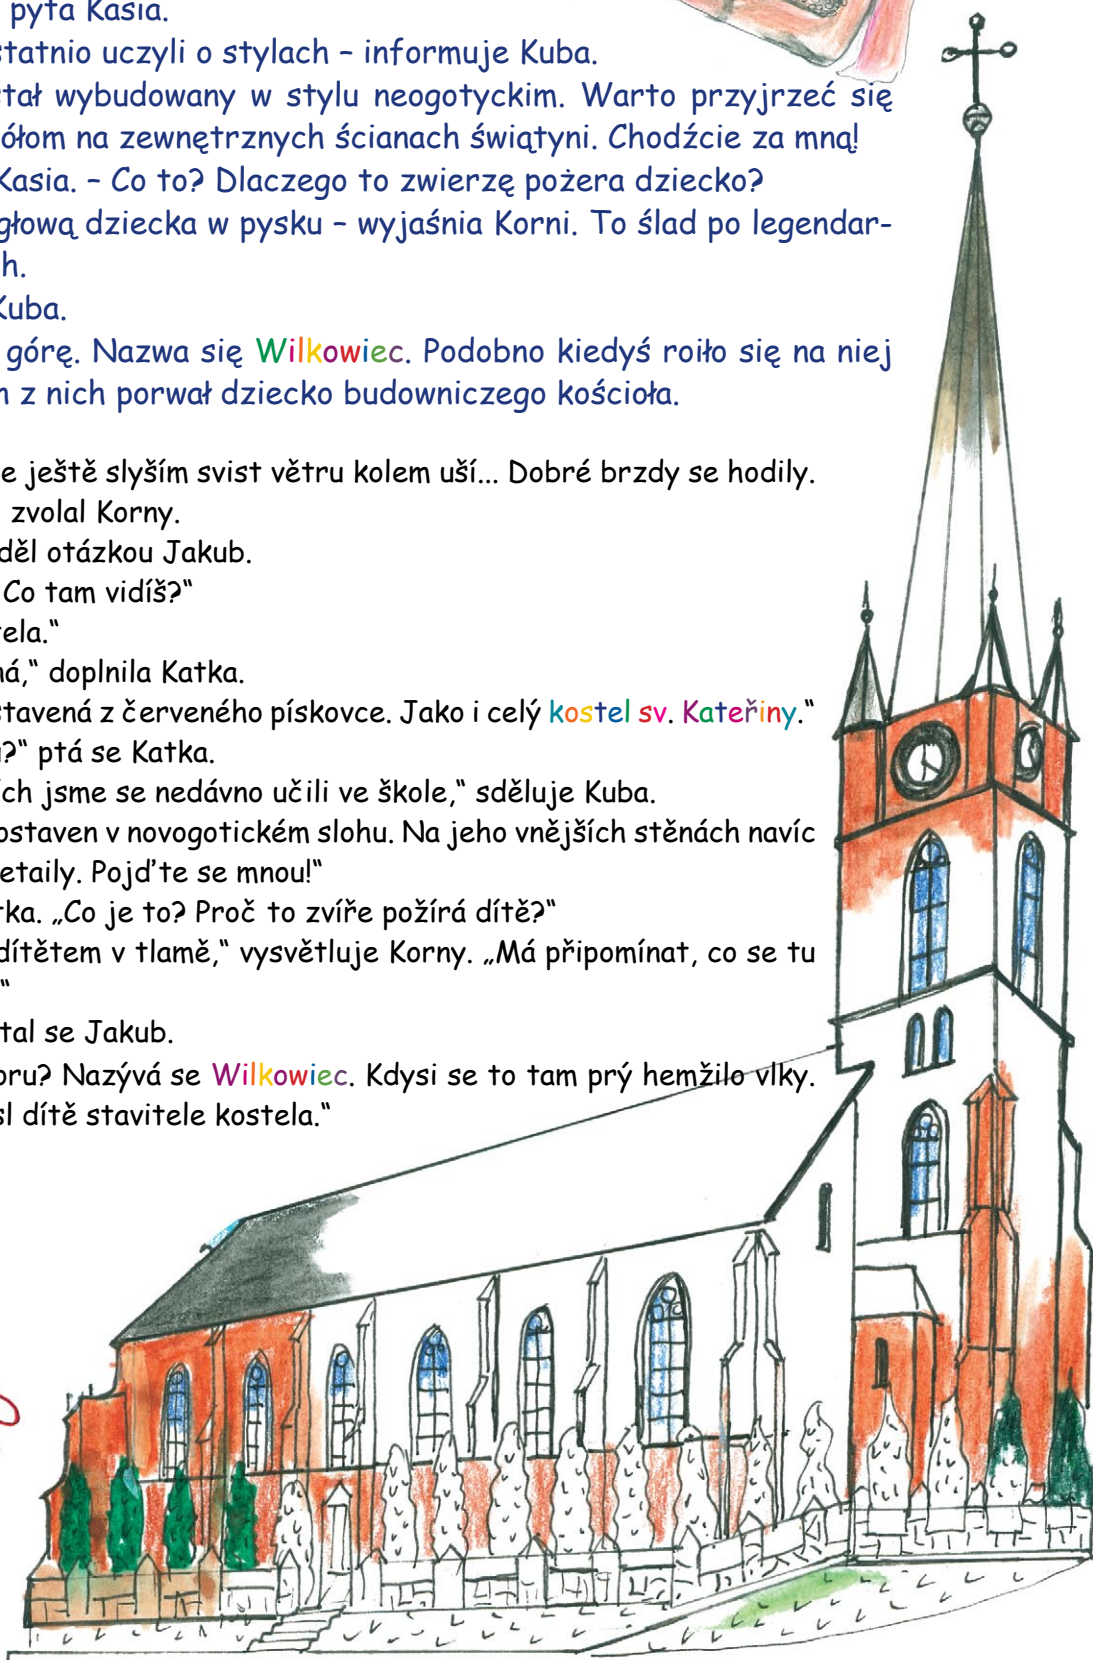 pyta Kasia.
statnio uczyli o stylach – informuje Kuba.
stał wybudowany w stylu neogotyckim. Warto przyjrzeć się
ółom na zewnętrznych ścianach świątyni. Chodźcie za mną!
Kasia. – Co to? Dlaczego to zwierzę pożera dziecko?
głową dziecka w pysku – wyjaśnia Korni. To ślad po legendar-
h.
Kuba.
górę. Nazwa się Wilkowiec. Podobno kiedyś roiło się na niej
z nich porwał dziecko budowniczego kościoła.
e ještě slyším svist větru kolem uší... Dobré brzdy se hodily.
zvolal Korny.
děl otázkou Jakub.
Co tam vidíš?“
tela.“
ná,“ doplnila Katka.
stavená z červeného pískovce. Jako i celý kostel sv. Kateřiny.“
?“ ptá se Katka.
ích jsme se nedávno učili ve škole,“ sděluje Kuba.
ostaven v novogotickém slohu. Na jeho vnějších stěnách navíc
etaily. Pojďte se mnou!“
tka. „Co je to? Proč to zvíře požírá dítě?“
dítětem v tlamě,“ vysvětluje Korny. „Má připomínat, co se tu
“
tal se Jakub.
oru? Nazývá se Wilkowiec. Kdysi se to tam prý hemžilo vlky.
sl dítě stavitele kostela.“